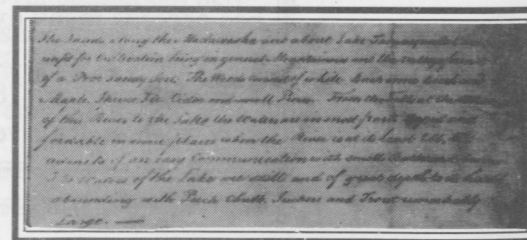 The Lands along the Madawaska and about Lake
unfit for Cultivation being in general Mountainous and the Valleys
of a Poor Sandy Soil. The Woods consist of white Birch some
Maple, Spruce Fir Cedar and small Pine. From the Falls at the
of this River to the Lake the Waters are in most parts rapid and
fordable in some places when the River is at its lowest Ebb,
admits of an easy Communication with small
The Waters of the Lake are still and of great depth
abounding with Chubb, Suckers and Trout remarkably
Large.